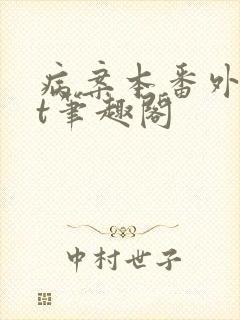 病案本番外
t筆趣阁
中村世子